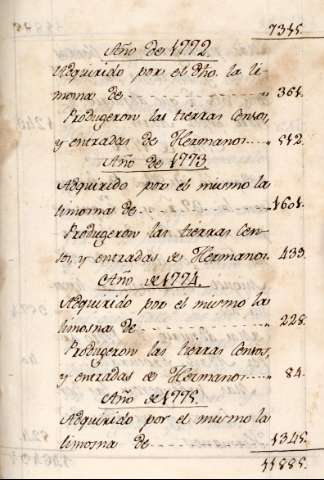 7315.
Año de 1772
Adquirido por el dho. la li-
mosna de 364.
Produgeron las tierras Censos,
y entradas de Hermanos 512.
Año de 1773
Adquirido por el mismo la
limosna de 1601.
Produgeron las tierras Cen-
sos, y entradas de Hermanos. 433.
Año de 1774.
Adquirido por el mismo la
limosna de 228.
Produgeron las tierras Censos,
y entradas de Hermanos 84.
Año de 1775.
Adquirido por el mismo la
limosna de 1345.
11885.